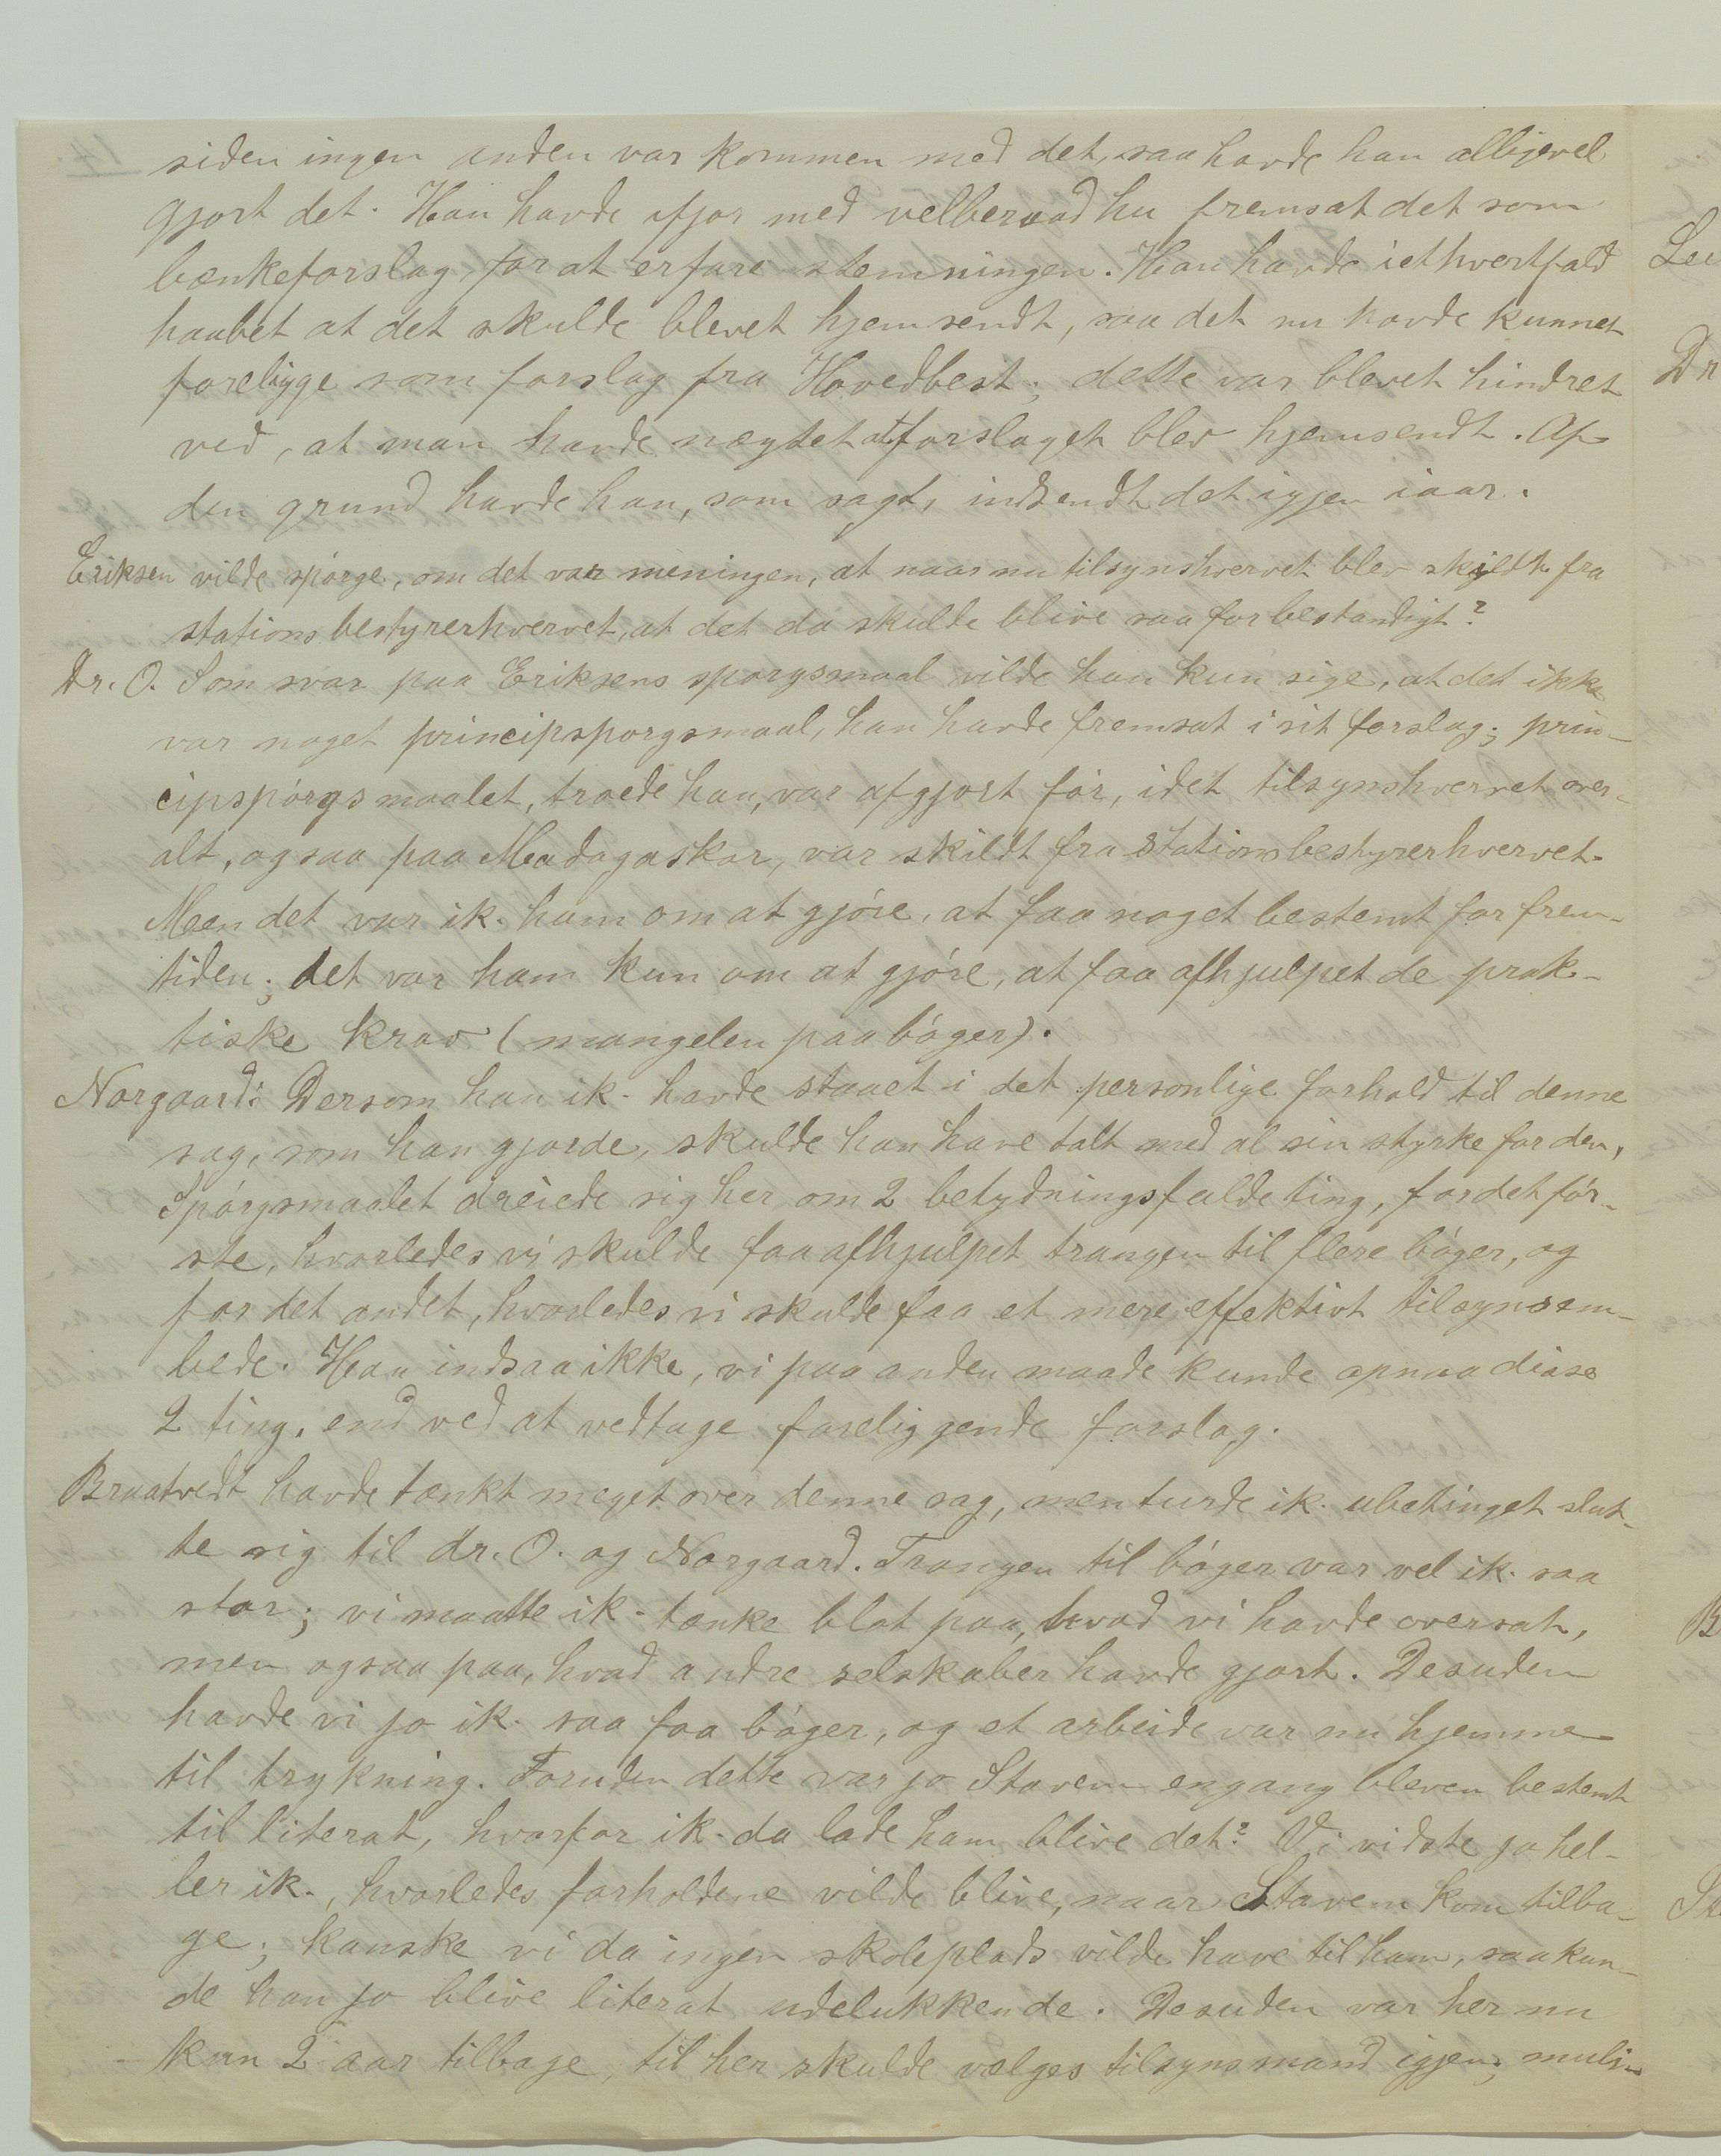 siden ingen anden var kommen med det, saa havde han alligevel
gjort det. Han havde ifjor med velberaad hu fremsat det som
bænkeforslag, for at erfare stemningen. Han havde i ethvertfald
haabet at det skulde blevet hjemsendt, saa det nu havde kunnet
foreligge som forslag fra Hovedbest.; dette var blevet hindret
ved, at man havde nægtet at forslaget blev hjemsendt. Af
den grund havde han, som sagt, indsendt det igjen iaar.
Eriksen vilde spørge, om det var meningen, at naar nu tilsynshvervet blev skildt fra
stationsbestyrerhvervet, at det da skulde blive saa for bestandigt?
Dr. O. Som svar paa Eriksens spørgsmaal vilde han kun sige, at det ikke
var noget principspørgsmaal, han havde fremsat i sit forslag; prin-
cipspørgsmaalet, troede han, var afgjort før, idet tilsynshvervet over-
alt, ogsaa paa Madagaskar, var skildt fra stationsbestyrerhvervet.
Men det var ik. ham om at gjøre, at faa noget bestemt for frem-
tiden; det var ham kun om at gjøre, at faa afhjulpet de prak-
tiske krav (mangelen paa bøger).
Nørgaard: Dersom han ik. havde staaet i det personlige forhold til denne
sag, som han gjorde, skulde han have talt med al sin styrke for den,
Spørgsmaalet dreiede sig her om 2 betydningsfulde ting, for det før-
ste, hvorledes vi skulde faa afhjulpet trangen til flere bøger, og
for det andet, hvorledes vi skulde faa et mere effektivt tilsynsem-
bede. Han indsaa ikke, vi paa anden maade kunde opnaa disse
2 ting, end ved at vedtage foreliggende forslag.
Braatvedt havde tænkt meget over denne sag, men turde ik. ubetinget slut-
te sig til dr. O. og Nørgaard. Trangen til bøger var vel ik. saa
stor; vi maatte ik. tænke blot paa, hvad vi havde oversat,
men ogsaa paa, hvad andre selskaber havde gjort. Desuden
havde vi jo ik. saa faa bøger, og et arbeide var nu hjemme
til trykning. Foruden dette var jo Stavem engang bleven bestemt
til literat, hvorfor ik. da lade ham blive det? Vi vidste jo hel-
ler ik., hvorledes forholdene vilde blive, naar Stavem kom tilba-
ge; kanske vi da ingen skoleplads vilde have til ham, saa kun-
de han jo blive literat udelukkende. Desuden var her nu
kun 2 aar tilbage, til her skulde vælges tilsynsmand igjen; mulig